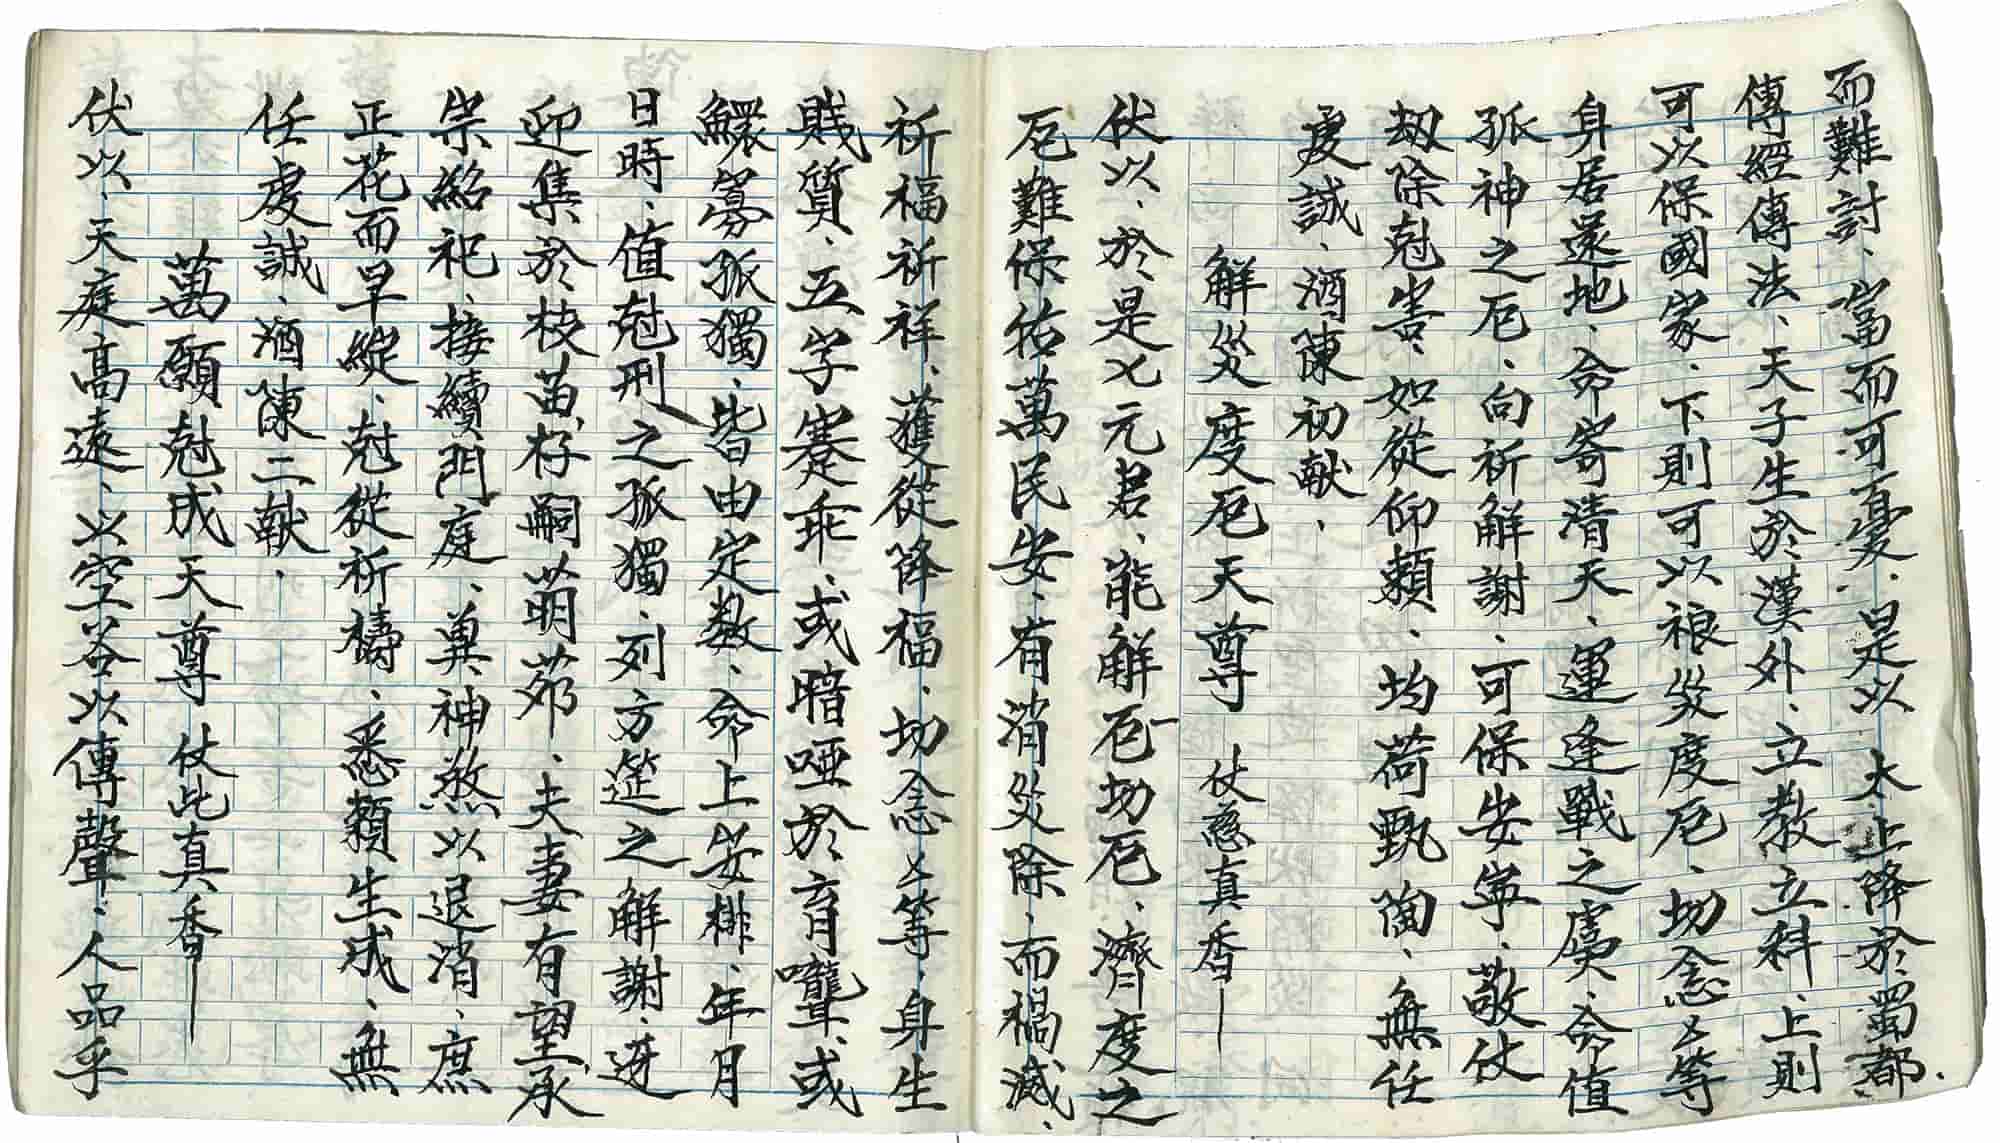 而難討、富而可憂、是以　太上降於蜀都、
傳經傳法、天子生於漢外、立教立科、上則
可以保國家、下則可以禳災度厄、切念〻等
身居還地、命寄清天、運逢戰之虞、命值
孤神之厄、向祈解謝、可保安寧、敬仗
劫除尅害、如從仰賴、均荷甄陶、無任
虔誠、酒陳初献、
解災度厄天尊　仗慈真香
伏以、於是七元君、能解厄切厄、濟度之
厄難保佑萬民安、有消災除、而禍滅、
祈福祈祥、獲從降福、切念〻等、身生
賎質、五字蹇乖、或暗啞於盲聾、或
鰥寡孤獨、皆由定数、命上安排、年月
日時、值尅刑之孤獨、列方筵之解謝、迓
迎集於枝苗、存嗣萌茆、夫妻有望承
宗紹祀、接續門庭、冀神煞以退消、庶
正花而早綻、尅從祈禱、悉賴生成、無
任虔誠、酒陳二献、
萬願尅成天尊　仗此真香
伏以、天庭高遠、以空谷以傳聲、人品乎